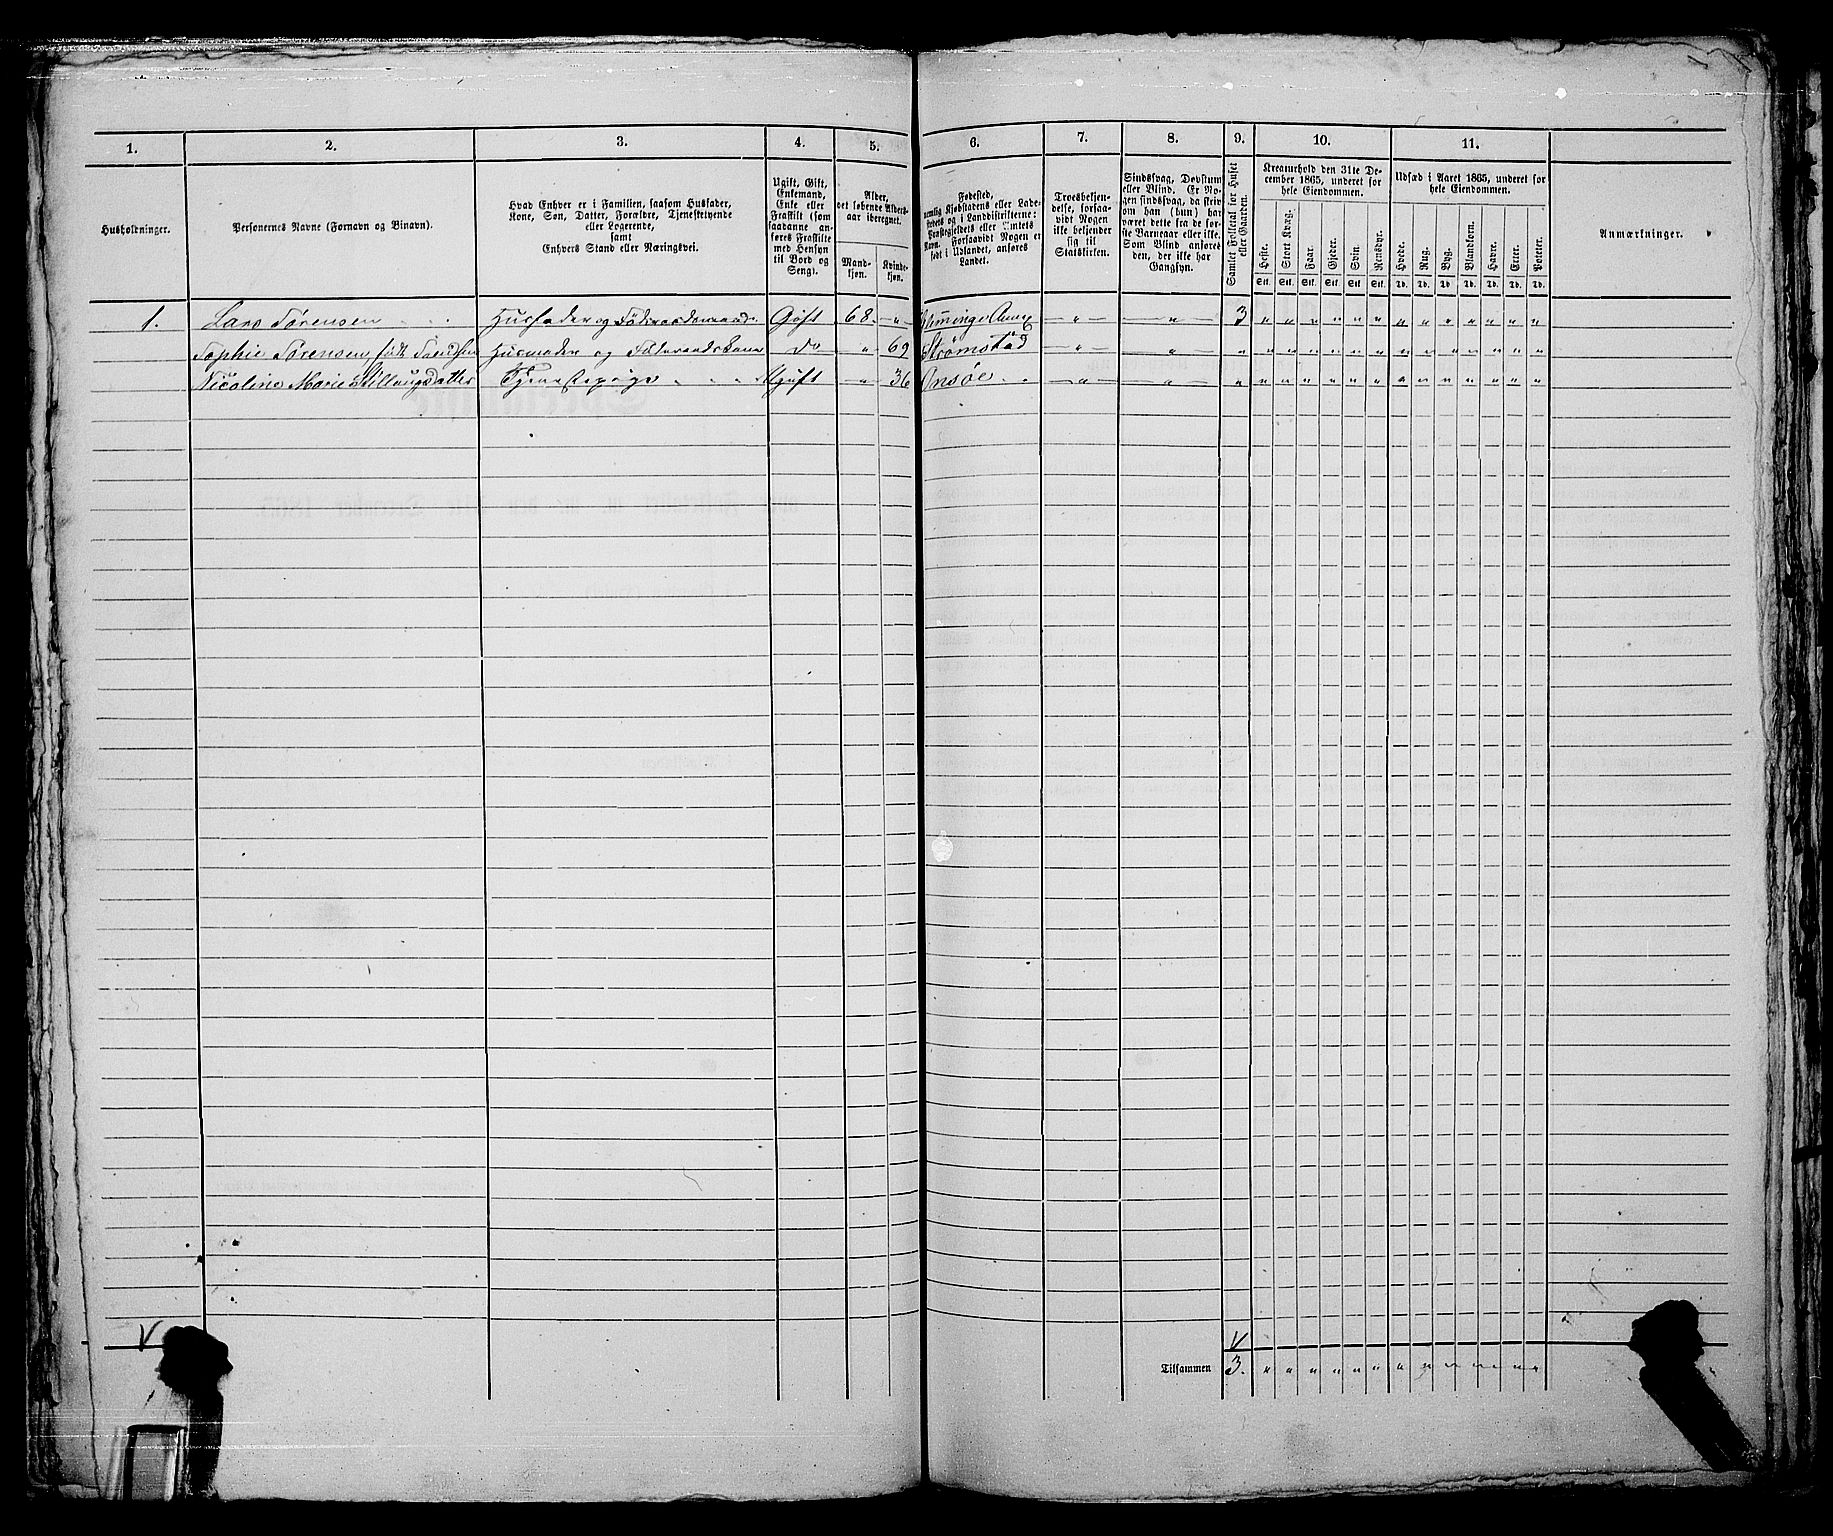 1. 2. 3. 4. 5. 6. 7. 8. 9. 10. 11.
Husholdninger.
Personernes Navne (Fornavn og Binavn).
Hvad Enhver er i Familien, saasom Husfader,
Kone, Søn, Datter, Forældre, Tjenestetyende
eller Logerende,
samt
Enhvers Stand eller Næringsvei.
Ugift, Gift,
Enkemand,
Enke eller
Fraskilt (som
saadanne an-
føres Fraskilte
med Hensyn
til Bord og
Seng).
Alder,
det løbende Alders-
aar iberegnet.
Mand-
kjøn.
Kvinde-
kjøn.
Fødested,
nemlig Kjøbstadens eller Lade-
stedets og i Landdistrikterne:
Præstegjeldets eller Amtets
Navn. Forsaavidt Nogen er
født i Udlandet, anføres
Landet.
Troesbekjen-
delse, forsaa-
vidt Nogen
ikke bekjender
sig til
Statskirken.
Sindssvag, Døvstum
eller Blind. Er No-
gen sindssvag, da skriv
om han (hun) har
været dette fra de før-
ste Barneaar eller ikke.
Som Blind anføres
den, der ikke har
Gangsyn.
Samlet Folketal for Huset
eller Gaarden.
Kreaturhold den 31te De-
cember 1865, underet for
hele Eiendommen.
Heste. Stort Kvæg. Faar. Gjeder. Svin. Rensdyr.
Stk. Stk. Stk. Stk. Stk. Stk.
Udsæd i Aaret 1865, underet for
hele Eiendommen.
Hvede. Rug. Byg. Blandkorn. Havre. Erter. Poteter.
Td. Td. Td. Td. Td. Td. Td.
Anmærkninger.
1. Lars Sørensen Husfader og Föderaadsmand Gift 68. „ „ „ 3 „ „ „ „ „ „ „ „ „ „ „ „ „
Sophie Sørensen, födt Husmoder og Föderaadskone do „ 69 Strømstad „ „ „ „ „ „ „ „ „ „ „ „ „ „ „ „
Nicoline Marie Tjenestepige Ugift „ 36 Onsøe „ „ „ „ „ „ „ „ „ „ „ „ „ „ „ „
V V
Tilsammen 3. „ „ „ „ „ „ „ „ „ „ „ „ „